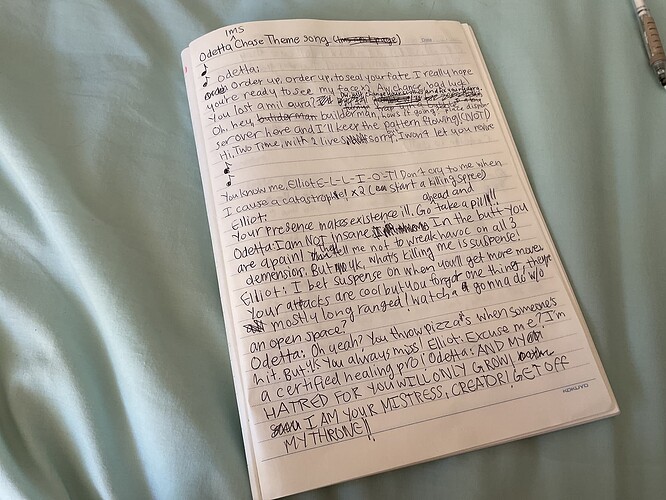 IMS
Odetta ^ Chase Theme song
odetta:
Order up, order up, to seal your fate. I really hope
you're ready to see my face x2 Aw chance, bad luck!
You lost a mil aura!
Oh, hey, builderman, hows it going? place dispen-
ser over here and I'll keep the pattern flowing! (NOT!)
Hi, Two Time, with 2 lives sorry, I won't let you revive
You know me, Elliot E-L-L-I-O-T! Don't cry to me when
I cause a catastrophe! x2 (can start a killing spree)
Elliot: ahead and
Your presence makes existence ill. Go take a pill!!!
Odetta: I am NOT insane. In the butt you
are a pain! They tell me not to wreak havoc on all 3
demension. But yk, whats killing me is suspense!
Elliot: I bet suspense on when you'll get more moves.
Your attacks are cool but you forgot one thing, theyre
mostly long ranged! watcha gonna do w/o
an open space?
Odetta: Oh yeah? You throw pizza's when someone's
hit. But yk You always miss! Elliot: Excuse me? I'm
a certified healing pro! Odetta: AND MY
HATRED FOR YOU WILL ONLY GROW!
I AM YOUR MISTRESS, CREADR! GET OFF
MY THRONE!!
KOKUYO